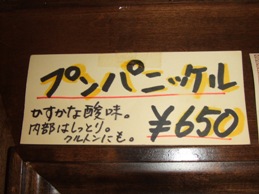 プンパニッケル
かすかな酸味。
内部はしっとり。
クルトンにも。
¥650